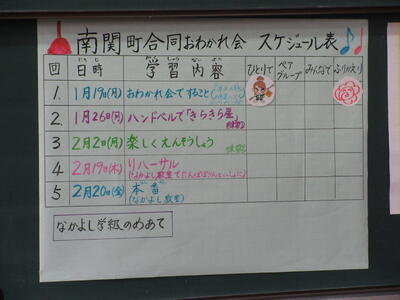 南関町合同おわかれ会 スケジュール表
回 日時 学習内容 ひとりで ペアグループ みんなで ふりかえり
1. 1月19日(月) おわかれ会ですること
2 1月26日(月) ハンドベルで「きらきら星」
3 2月2日(月) 楽しくえんそうしよう
4 2月19日(木) リハーサル
5 2月20日(金) 本番
(なかよし教室)
なかよし学級のめあて